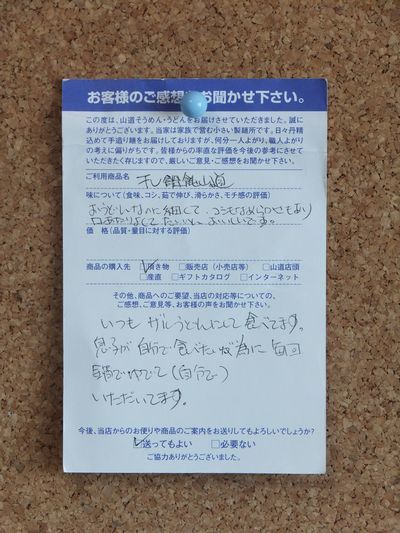 お客様のご感想をお聞かせ下さい。
この度は、山道そうめん・うどんをお届けさせていただきました。誠に
ありがとうございます。当家は家族で営む小さい製麺所です。日々丹精
込めて手造り麺をお届けしておりますが、何分一人よがり、職人よがり
の考えに偏りがちです。皆様からの率直な評価を今後の参考にさせて
いただきたく存じますので、厳しいご意見・ご感想をお聞かせ下さい。
ご利用商品名 干し饂飩山道
味について(食味、コシ、茹で伸び、滑らかさ、モチ感の評価)
おうどんなのに細くて、コシもなめらかさもあり
口あたりよくて おいしいです。
価 格(品質・量目に対する評価)
商品の購入先 ☑頂き物 □販売店(小売店等) □山道店頭
□産直 □ギフトカタログ □インターネット
その他、商品へのご要望、当店の対応等についての、
ご感想、ご意見等、お客様の声をお聞かせ下さい。
いつも ザルうどんにして 食べてます。
息子が 自分で 食べたい為に 毎回
鍋でゆでて(自分で)
いただいてます。
今後、当店からのお便りや商品のご案内をお送りしてもよろしいでしょうか?
☑送ってもよい □必要ない
ご協力ありがとうございました。